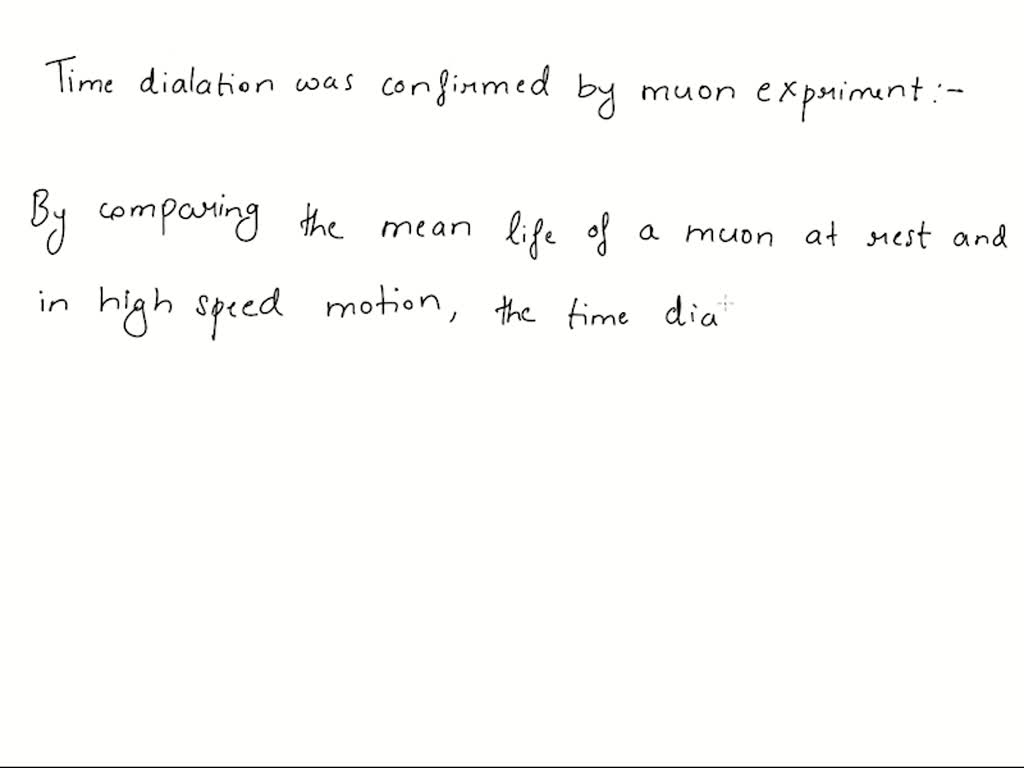 Time dialation was confirmed by muon expriment:-
By comparing the mean life of a muon at rest and
in high speed motion, the time dia